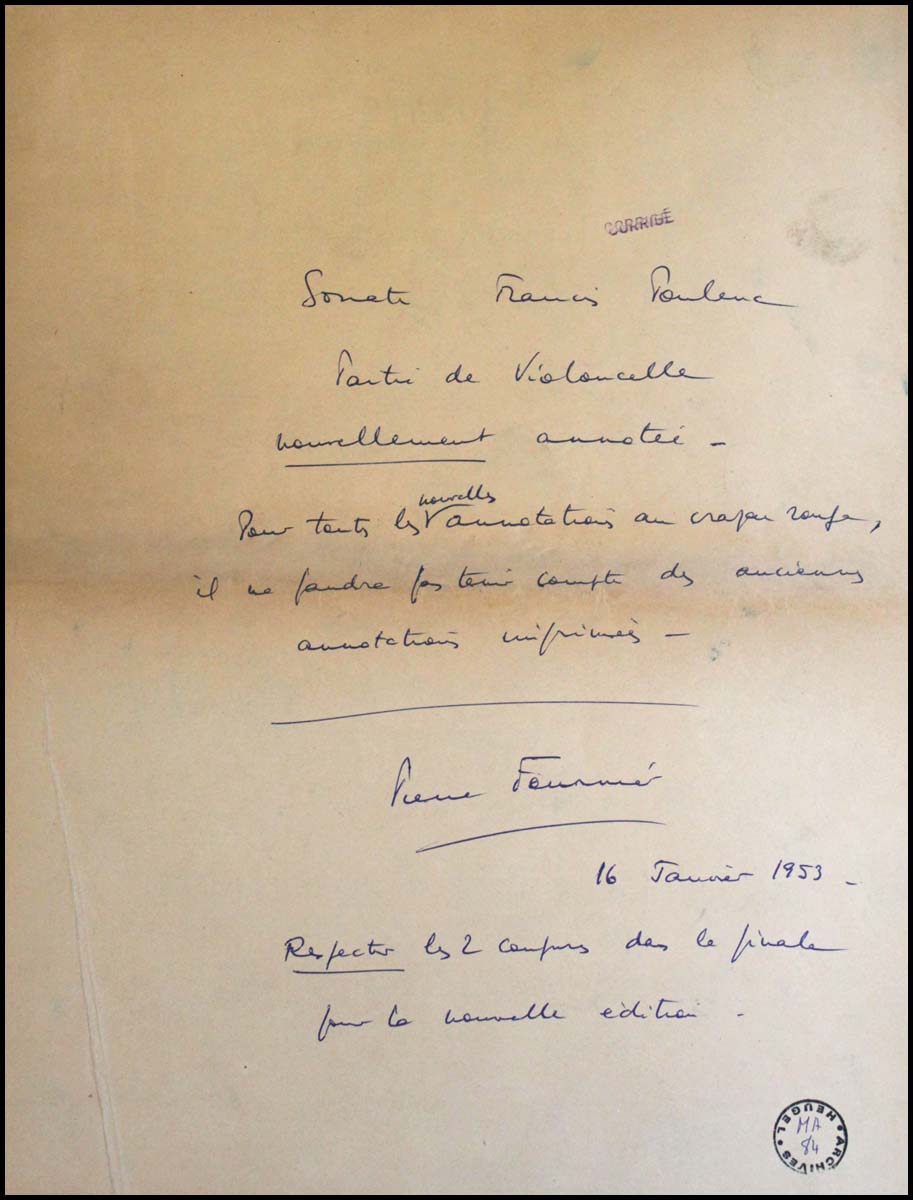 CORRIGÉ
Sonate Francis Poulenc
Partie de Violoncelle
nouvellement annotée -
nouvelles
Pour toutes les annotations au crayon rouge,
il ne faudra pas tenir compte des anciennes
annotations imprimées -
Pierre Fournier
16 Janvier 1953 -
Respecter les 2 coupures dans le finale
pour la nouvelle édition -
ARCHIVES HEUGEL
MA
84